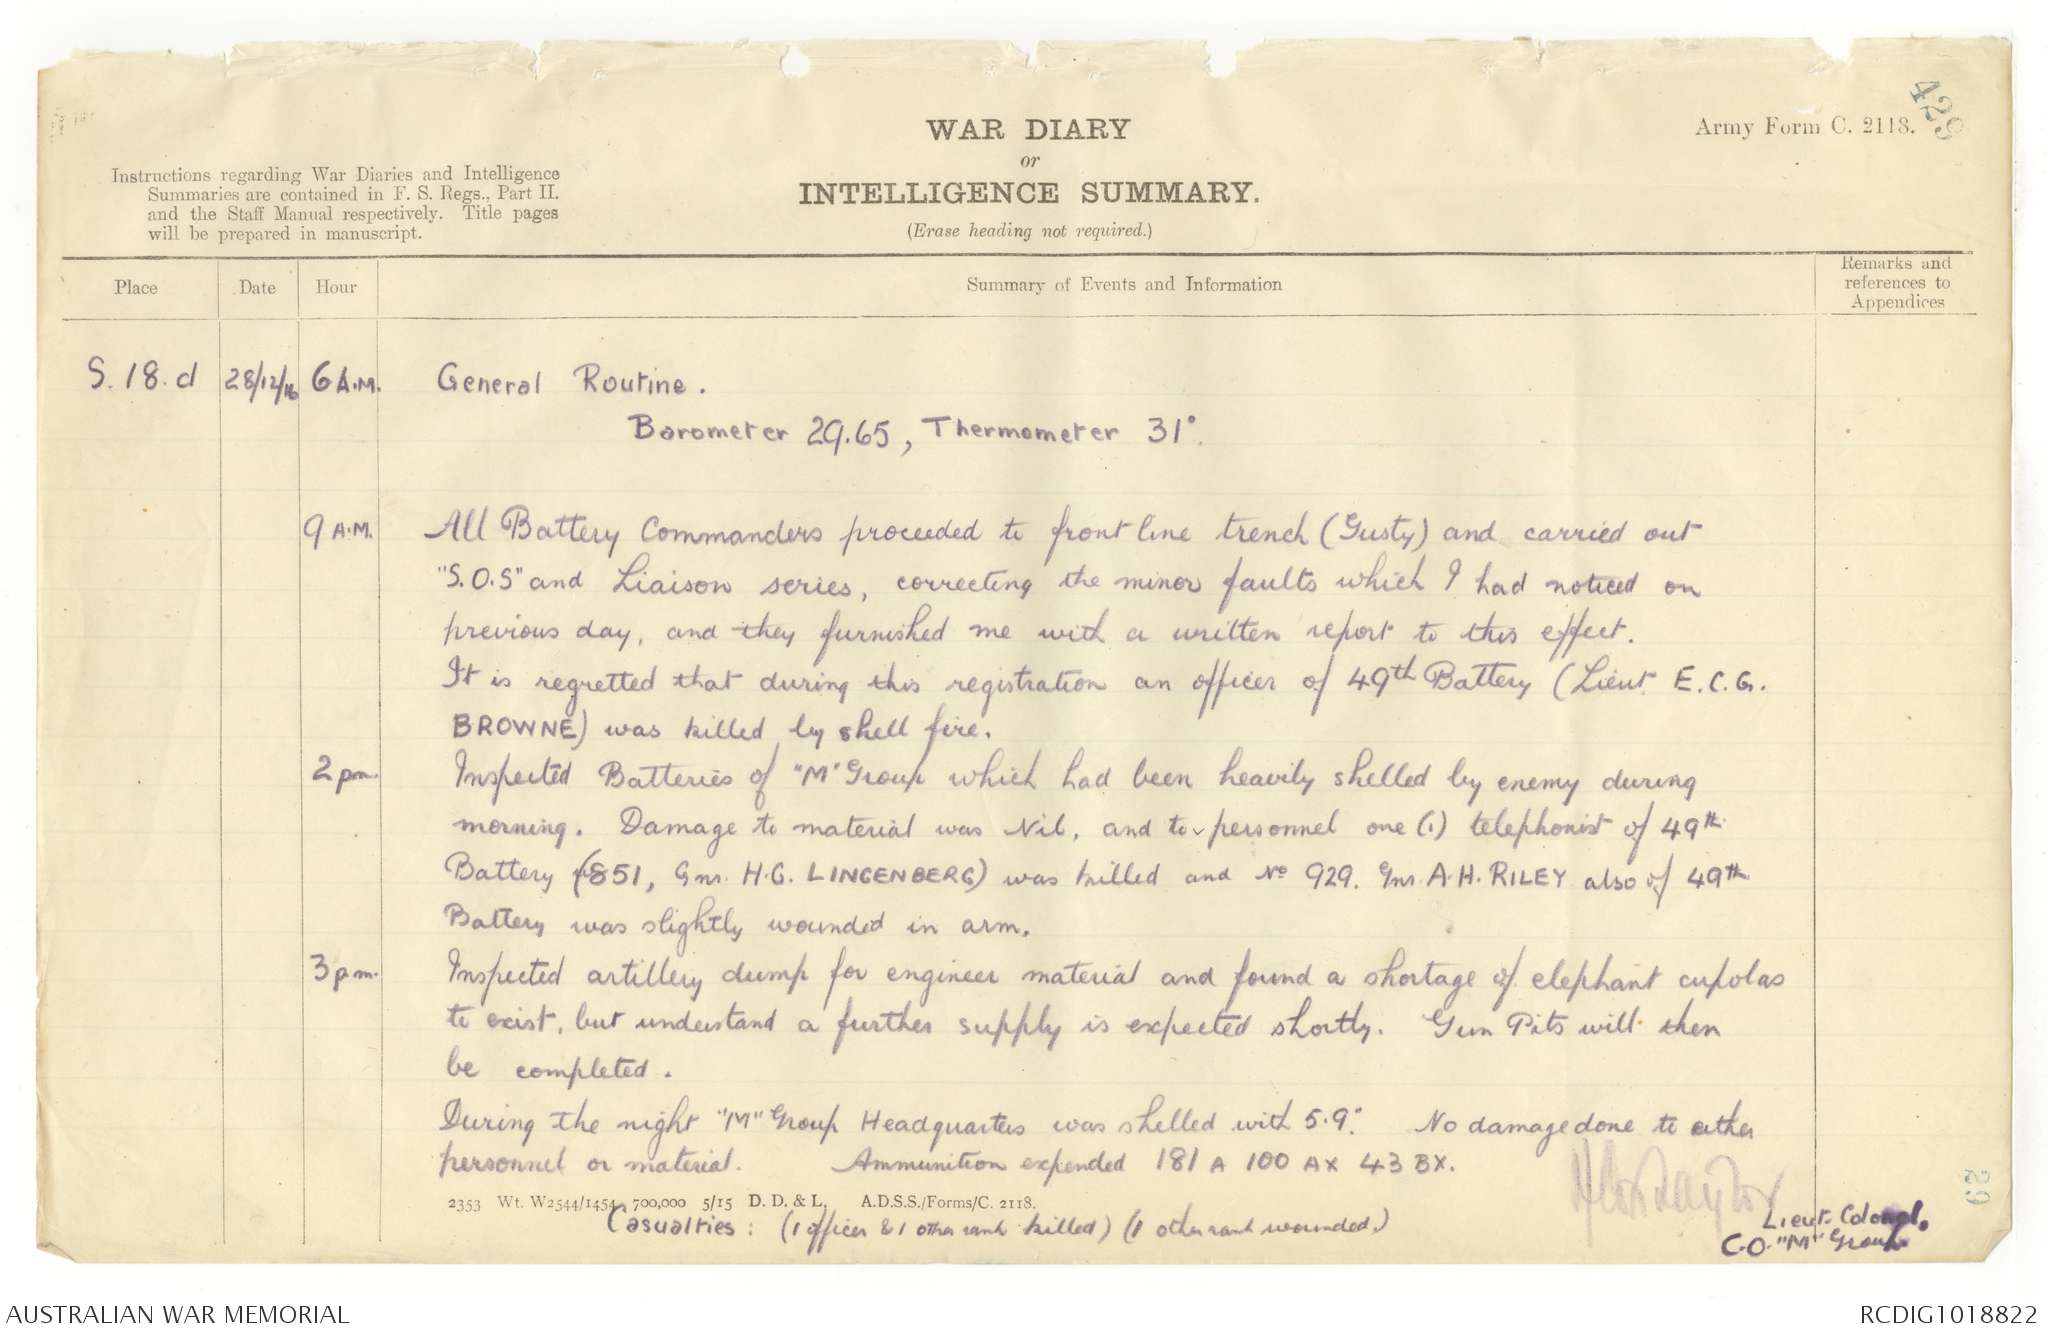 429
Army Form C. 2118.
WAR DIARY
or
INTELLIGENCE SUMMARY.
(Erase heading not required.)
Instructions regarding War Diaries and Intelligence
Summaries are contained in F. S. Regs., Part II.
and the Staff Manual respectively. Title pages
will be prepared in manuscript.
Place Date Hour Summary of Events and Information Remarks and references to Appendices
S. 18. d 28/12/16 6 A.M. General Routine.
Barometer 29.65, Thermometer 31°.
9 A.M. All Battery Commanders proceeded to front line trench (Gusty) and carried out
"S.O.S" and Liaison series, correcting the minor faults which I had noticed on
previous day, and they furnished me with a written report to this effect.
It is regretted that during this registration an officer of 49th Battery (Lieut E.C.G.
BROWNE) was killed by shell fire.
2 pm. Inspected Batteries of "M" Group which had been heavily shelled by enemy during
morning. Damage to material was Nil, and to personnel one (1) telephonist of 49th
Battery (851, Gnr. H.G. LINGENBERG) was killed and No 929. Gnr. A.H. RILEY also of 49th
Battery was slightly wounded in arm.
3 pm. Inspected artillery dump for engineer material and found a shortage of elephant cupolas
to exist, but understand a further supply is expected shortly. Gun Pits will then
be completed.
During the night "M" Group Headquarters was shelled with 5.9". No damage done to either
personnel or material. Ammunition expended 181 A 100 AX 43 BX.
2353 Wt. W2544/1454 700,000 5/15 D. D. & L. A.D.S.S./Forms/C. 2118.
Casualties: (1 officer & 1 other rank killed) (1 other rank wounded.)
Lieut-Colonel.
C.O. "M" Group
29
AUSTRALIAN WAR MEMORIAL
RCDIG1018822